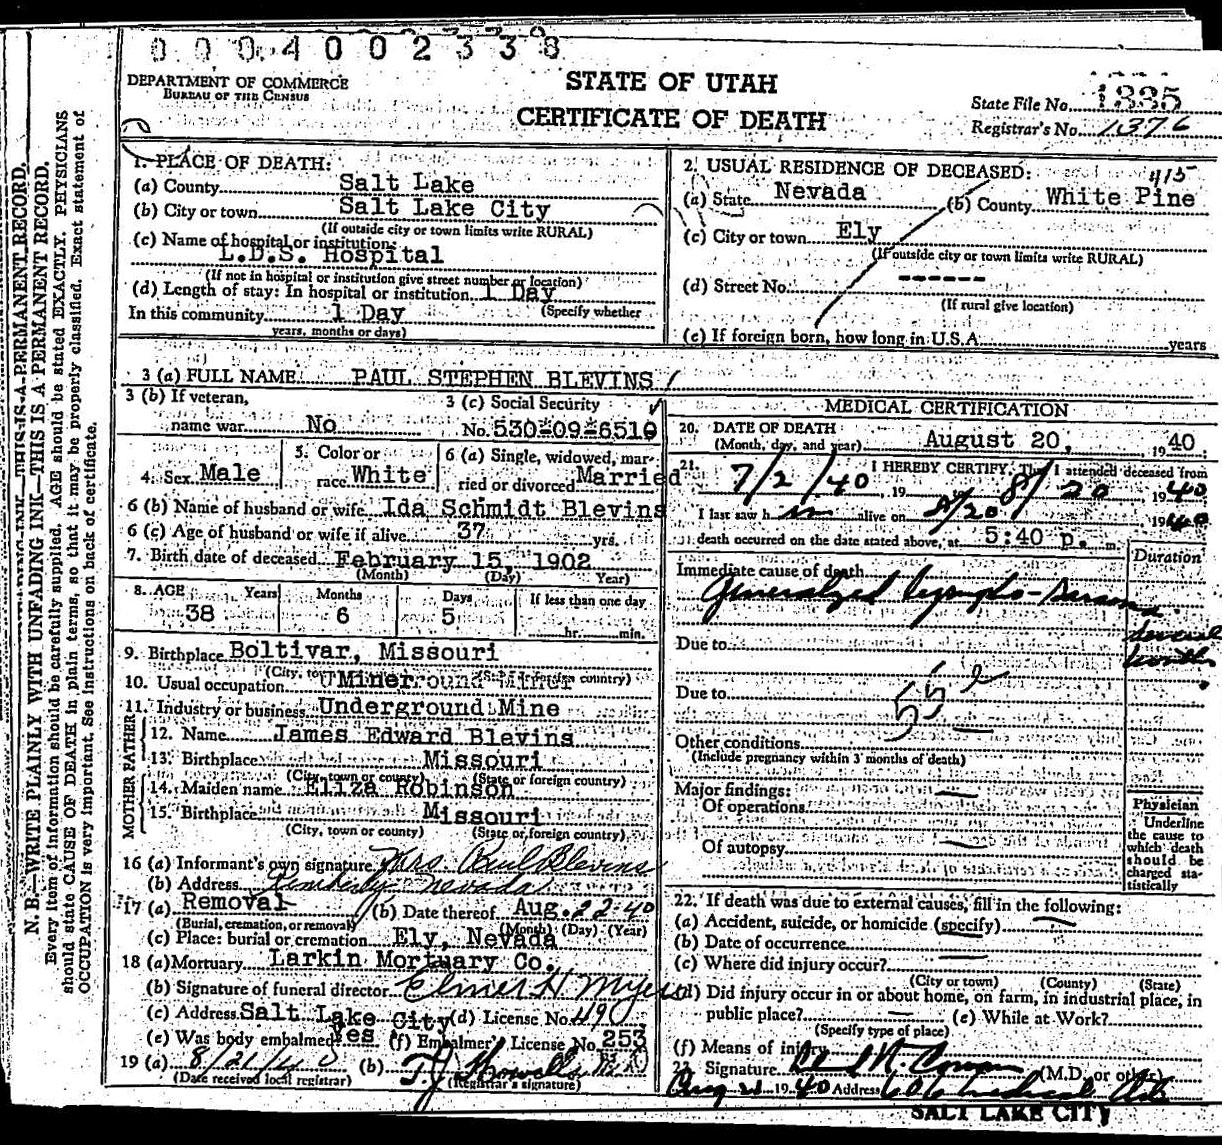 0004002338
DEPARTMENT OF COMMERCE
BUREAU OF THE CENSUS
STATE OF UTAH
CERTIFICATE OF DEATH
State File No. 1335
Registrar's No. 1376
1. PLACE OF DEATH:
(a) County Salt Lake
(b) City or town Salt Lake City
(If outside city or town limits write RURAL)
(c) Name of hospital or institution:
L.D.S. Hospital
(If not in hospital or institution give street number or location)
(d) Length of stay: In hospital or institution 1 Day
(Specify whether
In this community 1 Day
years, months or days)
2. USUAL RESIDENCE OF DECEASED: 415
(a) State Nevada (b) County White Pine
(c) City or town Ely
(If outside city or town limits write RURAL)
(d) Street No. ------
(If rural give location)
(e) If foreign born, how long in U.S.A. years
3 (a) FULL NAME PAUL STEPHEN BLEVINS
3 (b) If veteran, name war No
3 (c) Social Security No. 530-09-6510
4. Sex Male
5. Color or race White
6 (a) Single, widowed, married or divorced Married
6 (b) Name of husband or wife Ida Schmidt Blevins
6 (c) Age of husband or wife if alive 37 yrs.
7. Birth date of deceased February 15, 1902
(Month) (Day) Year)
8. AGE Years Months Days If less than one day
38 6 5 hr. min.
9. Birthplace Boltivar, Missouri
(City, town (State or foreign country)
10. Usual occupation Miner
11. Industry or business Underground Mine
FATHER
12. Name James Edward Blevins
13. Birthplace Missouri
(City, town or county) (State or foreign country)
MOTHER
14. Maiden name Eliza Robinson
15. Birthplace Missouri
(City, town or county) (State or foreign country)
16 (a) Informant's own signature Mrs Paul Blevins
(b) Address Kimberly Nevada
17 (a) Removal (b) Date thereof Aug. 22-40
(Burial, cremation, or removal) (Month) (Day) (Year)
(c) Place: burial or cremation Ely, Nevada
18 (a) Mortuary Larkin Mortuary Co.
(b) Signature of funeral director Elmer H Myers
(c) Address Salt Lake City (d) License No. 490
(e) Was body embalmed? Yes (f) Embalmer's License No. 253
19 (a) 8/21/40 (b) T. J. Howells M.D.
(Date received local registrar) (Registrar's signature)
MEDICAL CERTIFICATION
20. DATE OF DEATH
(Month, day, and year) August 20, 1940
21. I HEREBY CERTIFY, That I attended deceased from
7/2/40, 19 to 8/20 1940
I last saw him alive on 8/20 1940
death occurred on the date stated above, at 5:40 p. m.
Duration
Immediate cause of death
Generalized lympho-sarcoma
several months
Due to
55 e
Due to
Other conditions
(Include pregnancy within 3 months of death)
Major findings:
Of operations
Of autopsy
Physician
Underline the cause to which death should be charged statistically
22. If death was due to external causes, fill in the following:
(a) Accident, suicide, or homicide (specify)
(b) Date of occurrence
(c) Where did injury occur?
(City or town) (County) (State)
(d) Did injury occur in or about home, on farm, in industrial place, in
public place? (e) While at Work?
(Specify type of place)
(f) Means of injury
23. Signature (M.D. or other)
Aug 21 1940 Address 606 Medical Arts
SALT LAKE CITY
N. B.—WRITE PLAINLY WITH UNFADING INK—THIS IS A PERMANENT RECORD.
Every item of information should be carefully supplied. AGE should be stated EXACTLY. PHYSICIANS
should state CAUSE OF DEATH in plain terms, so that it may be properly classified. Exact statement of
OCCUPATION is very important. See instructions on back of certificate.